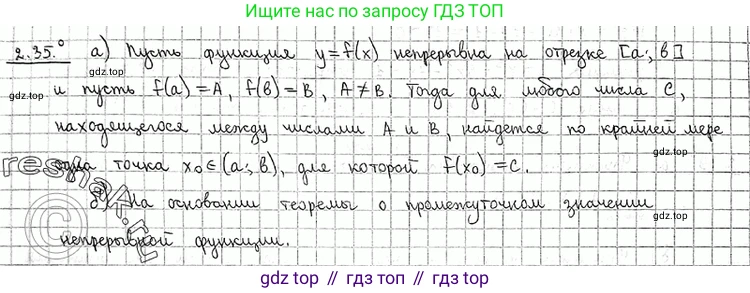 Ищите нас по запросу ГДЗ ТОП
2.35.° а) Пусть функция y=f(x) непрерывна на отрезке [a; в]
и пусть f(a) = A, f(в) = B, A ≠ B. Тогда для любого числа C,
находящегося между числами A и B, найдется по крайней мере
одна точка x₀ ∈ (a; в), для которой f(x₀) = C.
б) На основании теоремы о промежуточном значении
непрерывной функции.
gdz top // гдз топ // gdz top